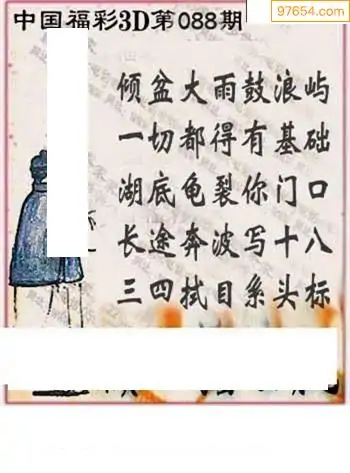 97654.com
中国福彩3D第088期
倾盆大雨鼓浪屿
一切都得有基础
湖底龟裂你门口
长途奔波写十八
三四拭目系头标